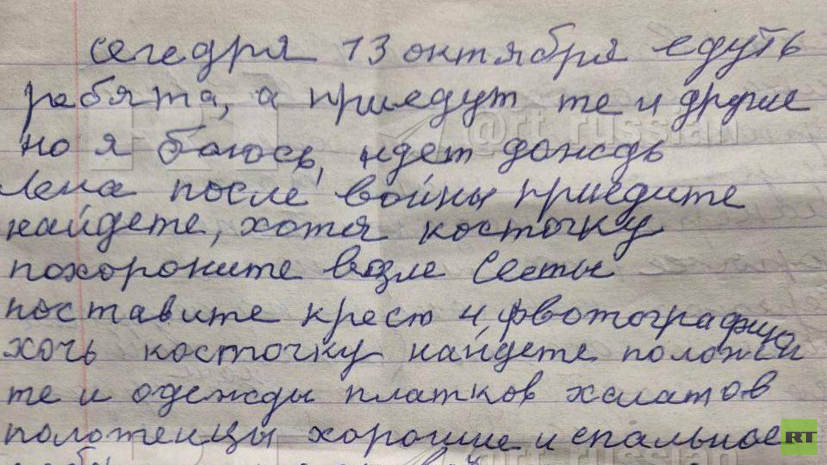 сегедря 13 октября едуть
ребята, а приедут те и другие
но я боюсь, идет дождь
Лена после войны приедите
найдете, хотя косточку
похороните возле Сесты
поставите крест и фвотографию
хочь косточку найдете положи
те и одежды платков халатов
полотенцы хорошие и спальное
@rt_russian
RT